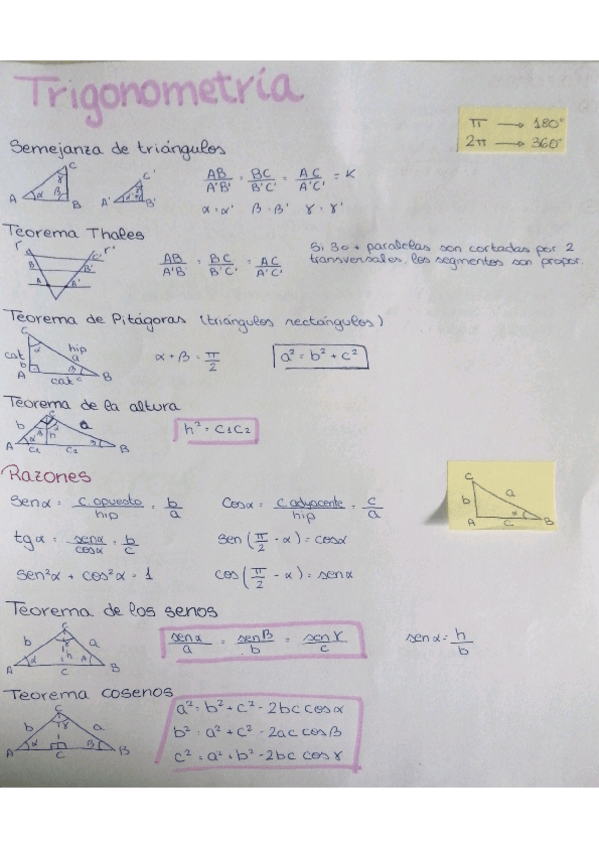 Trigonometría
π → 180°
2π → 360°
Semejanza de triángulos
AB/A'B' = BC/B'C' = AC/A'C' = K
α = α' β = β' γ = γ'
A B C α β γ
A' B' C'
Teorema Thales
r r'
B B'
A A'
C'
AB/A'B' = BC/B'C' = AC/A'C'
Si 3 o + paralelas son cortadas por 2
transversales, los segmentos son propor.
Teorema de Pitágoras (triángulos rectángulos)
C
cat b hip a
A cat c B
α + β = π/2
a² = b² + c²
Teorema de la altura
C b a
A α h β B
c1 c2
h² = c1c2
Razones
senα = c.opuesto/hip = b/a
cosα = c.adyacente/hip = c/a
tgα = senα/cosα = b/c
sen(π/2 - α) = cosα
sen²α + cos²α = 1
cos(π/2 - α) = senα
C
b a
A c α B
Teorema de los senos
C
b a
h
A α B
c
senα/a = senβ/b = senγ/c
senα = h/b
Teorema cosenos
C
b γ a
A α β B
c
a² = b² + c² - 2bc cosα
b² = a² + c² - 2ac cosβ
c² = a² + b² - 2bc cosγ